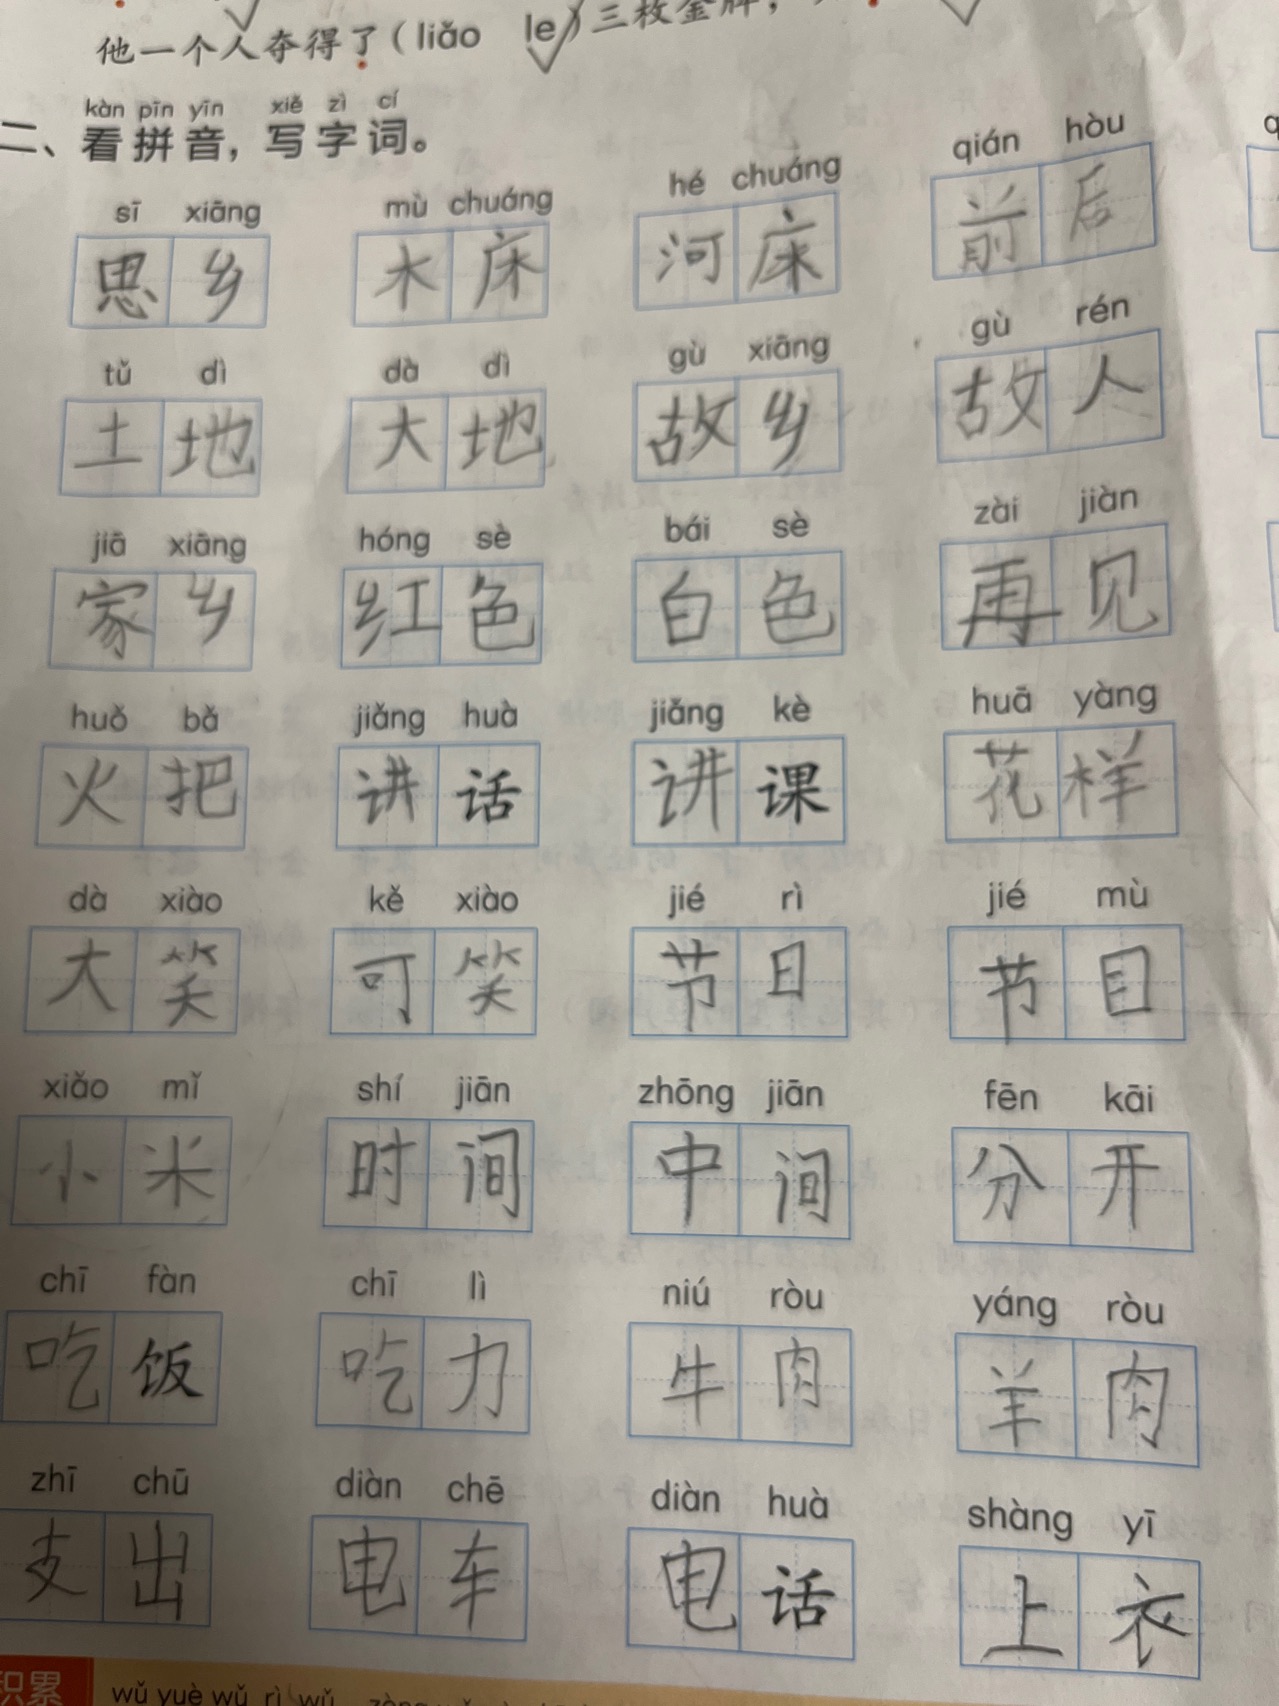 他一个人夺得了（liǎo le）三枚金牌，
kàn pīn yīn xiě zì cí
二、看拼音，写字词。
sī xiāng mù chuáng hé chuáng qián hòu
思乡 木床 河床 前后
tǔ dì dà dì gù xiāng gù rén
土地 大地 故乡 故人
jiā xiāng hóng sè bái sè zài jiàn
家乡 红色 白色 再见
huǒ bǎ jiǎng huà jiǎng kè huā yàng
火把 讲话 讲课 花样
dà xiào kě xiào jié rì jié mù
大笑 可笑 节日 节目
xiǎo mǐ shí jiān zhōng jiān fēn kāi
小米 时间 中间 分开
chī fàn chī lì niú ròu yáng ròu
吃饭 吃力 牛肉 羊肉
zhī chū diàn chē diàn huà shàng yī
支出 电车 电话 上衣
积累 wǔ yuè wǔ rì wǔ